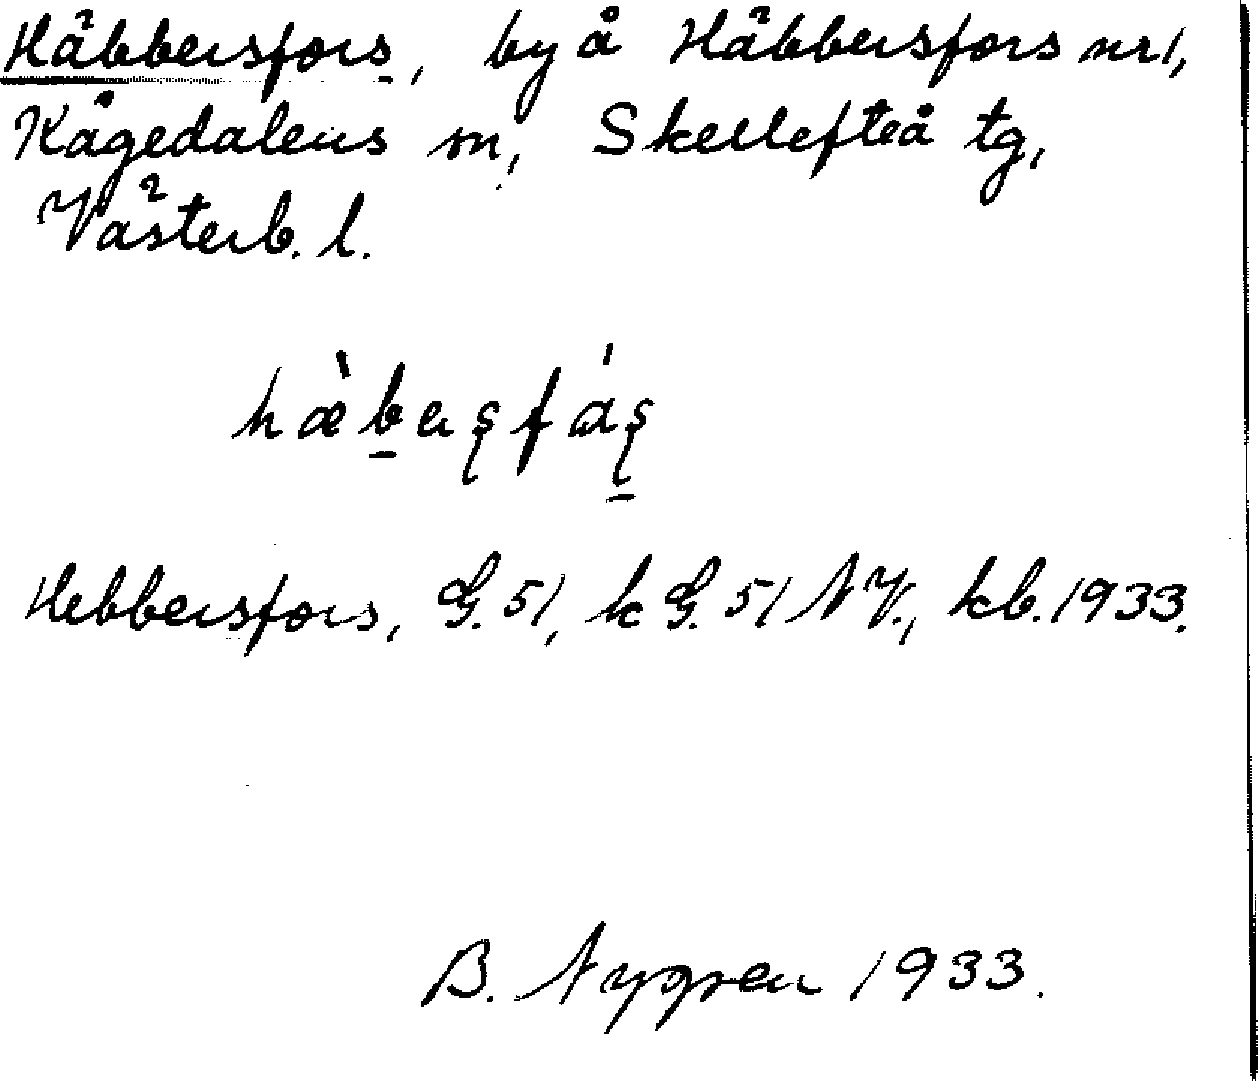 Häbbersfors, by å Häbbersfors nr 1,
Kågedalens sn, Skellefteå tg,
Västerb. l.
hæ̀b̠eʂfáʂ̠
Hebbersfors, G. 51, k G. 51 NV., kb. 1933.
B. Nygren 1933.